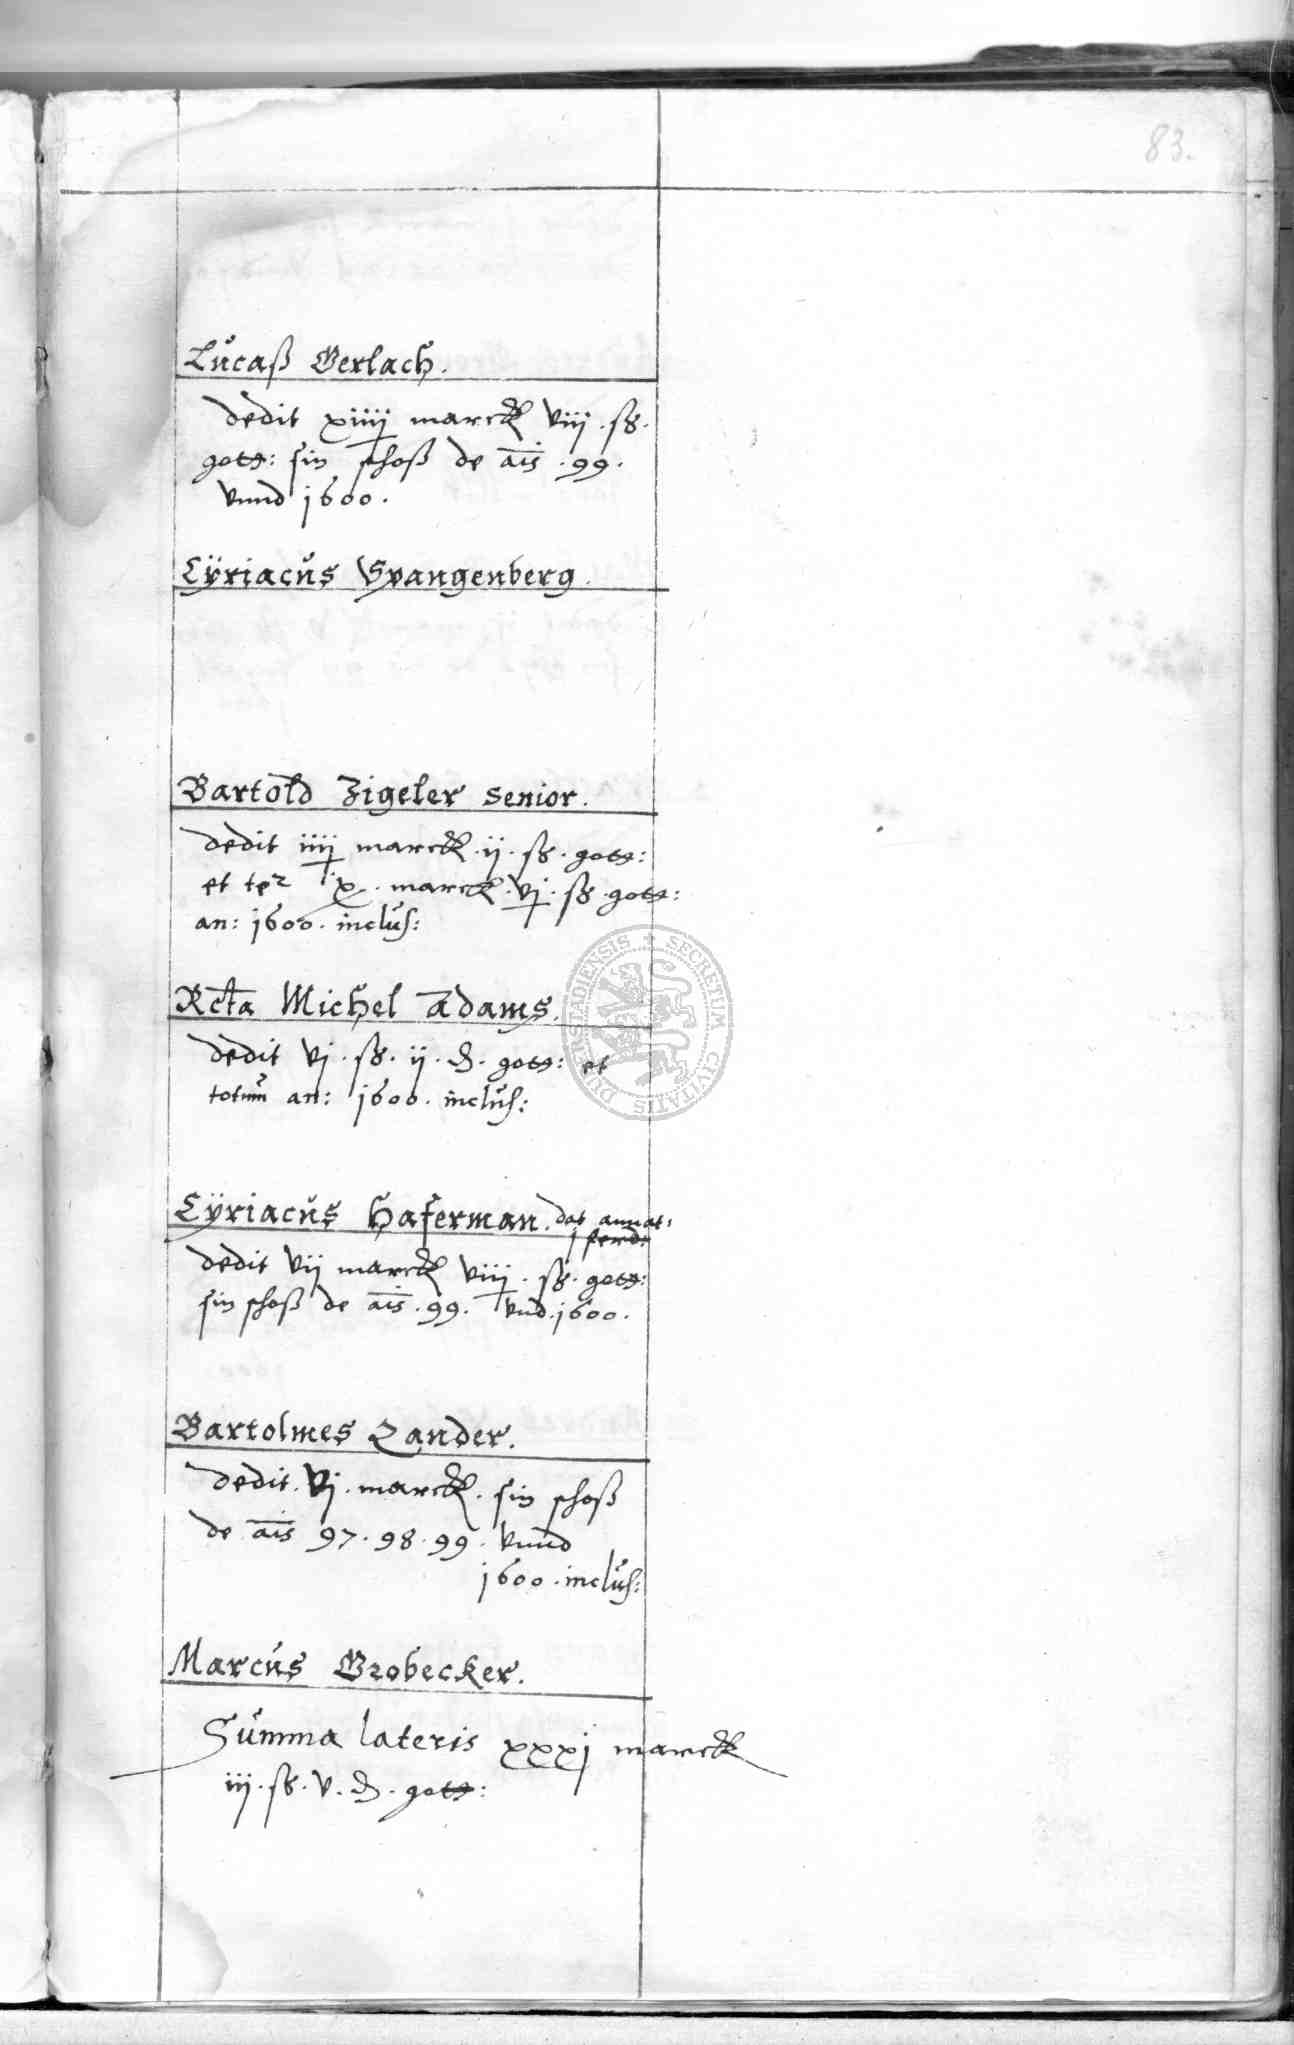 83.
Lucaß Gerlach.
dedit xiiij marck viij. ß.
gott: sin schoß de ais. 99.
vnnd 1600.
Cÿriacus Spangenberg.
Bartold Zigeler senior.
dedit iiij marck. ij. ß. gott:
et ter x. marck. vj. ß. gott:
an: 1600. inclus:
Rcta Michel Adams.
dedit vj. ß. ij. d. gott: et
totum an: 1600. inclus:
Cÿriacus Haferman. dat annat:
j ferd:
dedit vij marck viij. ß. gott:
sin schoß de ais. 99. vnd. 1600.
Bartolmes Zander.
dedit. vj. marck. sin schoß
de ais 97. 98. 99. vnnd
1600. inclus:
Marcus Grobecker.
Summa lateris xxxj marck
iij. ß. v. d. gott:
SECRETUM CIVITATIS DUDERSTADIENSIS